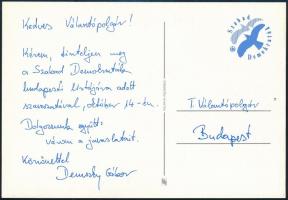 Kedves Választópolgár!
Kérem, tiszteljen meg
a Szabad Demokraták
budapesti listájára adott
szavazatával, október 14-én.
Dolgozzunk együtt:
várom a javaslatait.
Köszönettel
Demszky Gábor
Szabad
Demokraták
T. Választópolgár
Budapest